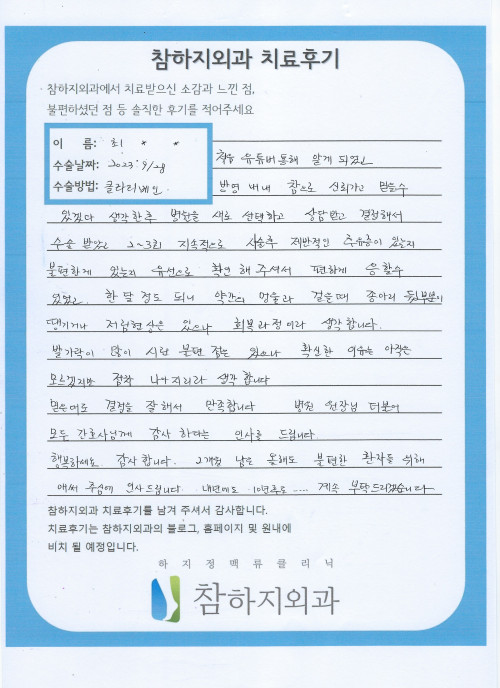 참하지외과 치료후기
참하지외과에서 치료받으신 소감과 느낀 점,
불편하셨던 점 등 솔직한 후기를 적어주세요
이 름: 최 * *
수술날짜: 2023. 9/28
수술방법: 클라리베인
처음 유튜버 통해 알게 되었고
반영 내내 참으로 신뢰가고 믿을수
있겠다 생각한후 병원을 새로 선택하고 상담받고 결정해서
수술 받았고 2~3회 지속적으로 시술후 제반적인 후유증이 있는지
불편한게 있는지 유선으로 확인해 주셔서 편하게 응할수
있었고. 한달정도 되니 약간의 멍울과 걸을때 종아리 뒷부분이
땡기거나 저림현상은 있으나 회복과정이라 생각합니다.
발가락이 많이 시린 불편 점은 있으나 확실한 이유는 아직은
모르겠지만 점차 나아지리라 생각합니다
믿은대로 결정을 잘해서 만족합니다 병원 원장님 더불어
모두 간호사님께 감사 하다는 인사를 드립니다.
행복하세요. 감사합니다. 2개월 남은 올해도 불편한 환자를 위해
애써 주심에 인사드립니다. 내년에도 10년후도 .... 계속 부탁드리겠습니다
참하지외과 치료후기를 남겨 주셔서 감사합니다.
치료후기는 참하지외과의 블로그, 홈페이지 및 원내에
비치 될 예정입니다.
하지정맥류클리닉
참하지외과